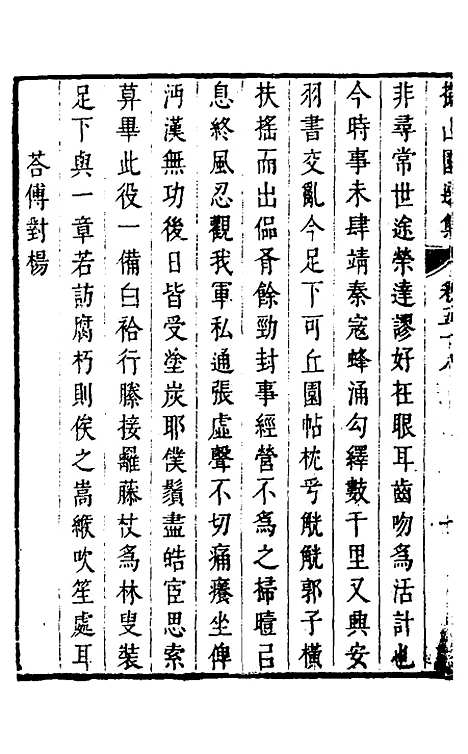 非尋常世途榮達謬好在眼耳齒吻為活計也
今時事未肆靖秦寇蜂涌勾繹數千里又興安
羽書交亂今足下可丘園帖枕乎觥觥郭子橫
扶搖而出偘胥餘勁封事經營不為之掃曀已
息終風忍觀我軍私通張虛聲不切痛癢坐俾
沔漢無功後日皆受塗炭耶僕鬚盡皓宦思索
算畢此役一備白袷行縢接䍦藤杖為林叟裝
足下與一章若訪腐朽則俟之嵩緱吹笙處耳
荅傅對楊